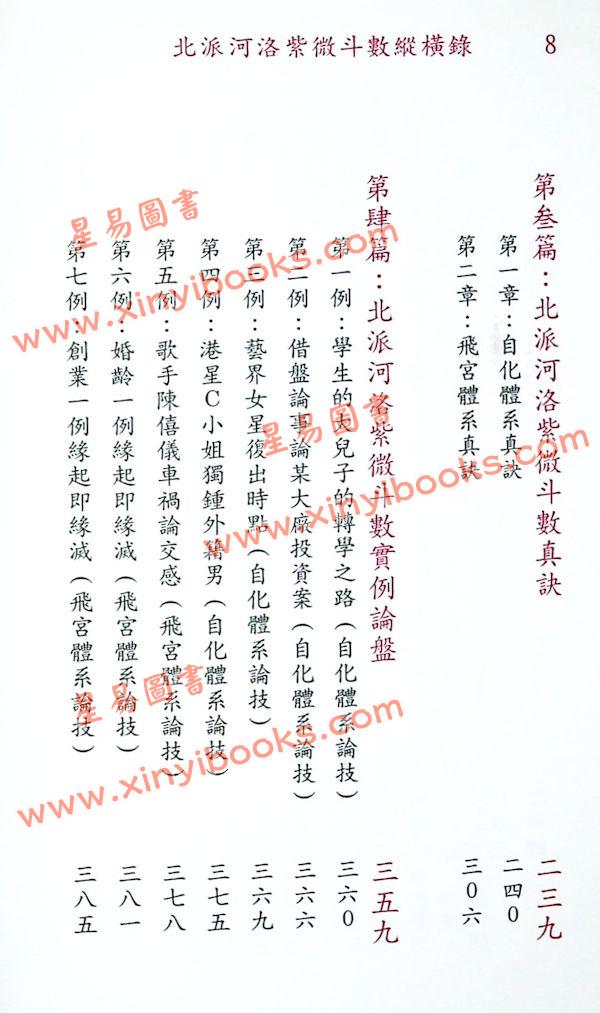 北派河洛紫微斗數縱橫錄 8
第叁篇：北派河洛紫微斗數真訣 二三九
第一章：自化體系真訣 二四0
第二章：飛宮體系真訣 三0六
第肆篇：北派河洛紫微斗數實例論盤 三五九
第一例：學生的大兒子的轉學之路（自化體系論技） 三六0
第二例：借盤論事論某大廠投資案（自化體系論技） 三六六
第三例：藝界女星復出時點（自化體系論技） 三六九
第四例：港星C小姐獨鍾外籍男（自化體系論技） 三七五
第五例：歌手陳僖儀車禍論交感（飛宮體系論技） 三七八
第六例：婚齡一例緣起即緣滅（飛宮體系論技） 三八一
第七例：創業一例緣起即緣滅（飛宮體系論技） 三八五
星易圖書
www.xinyibooks.com
星易圖書
www.xinyibooks.com
星易圖書
www.xinyibooks.com